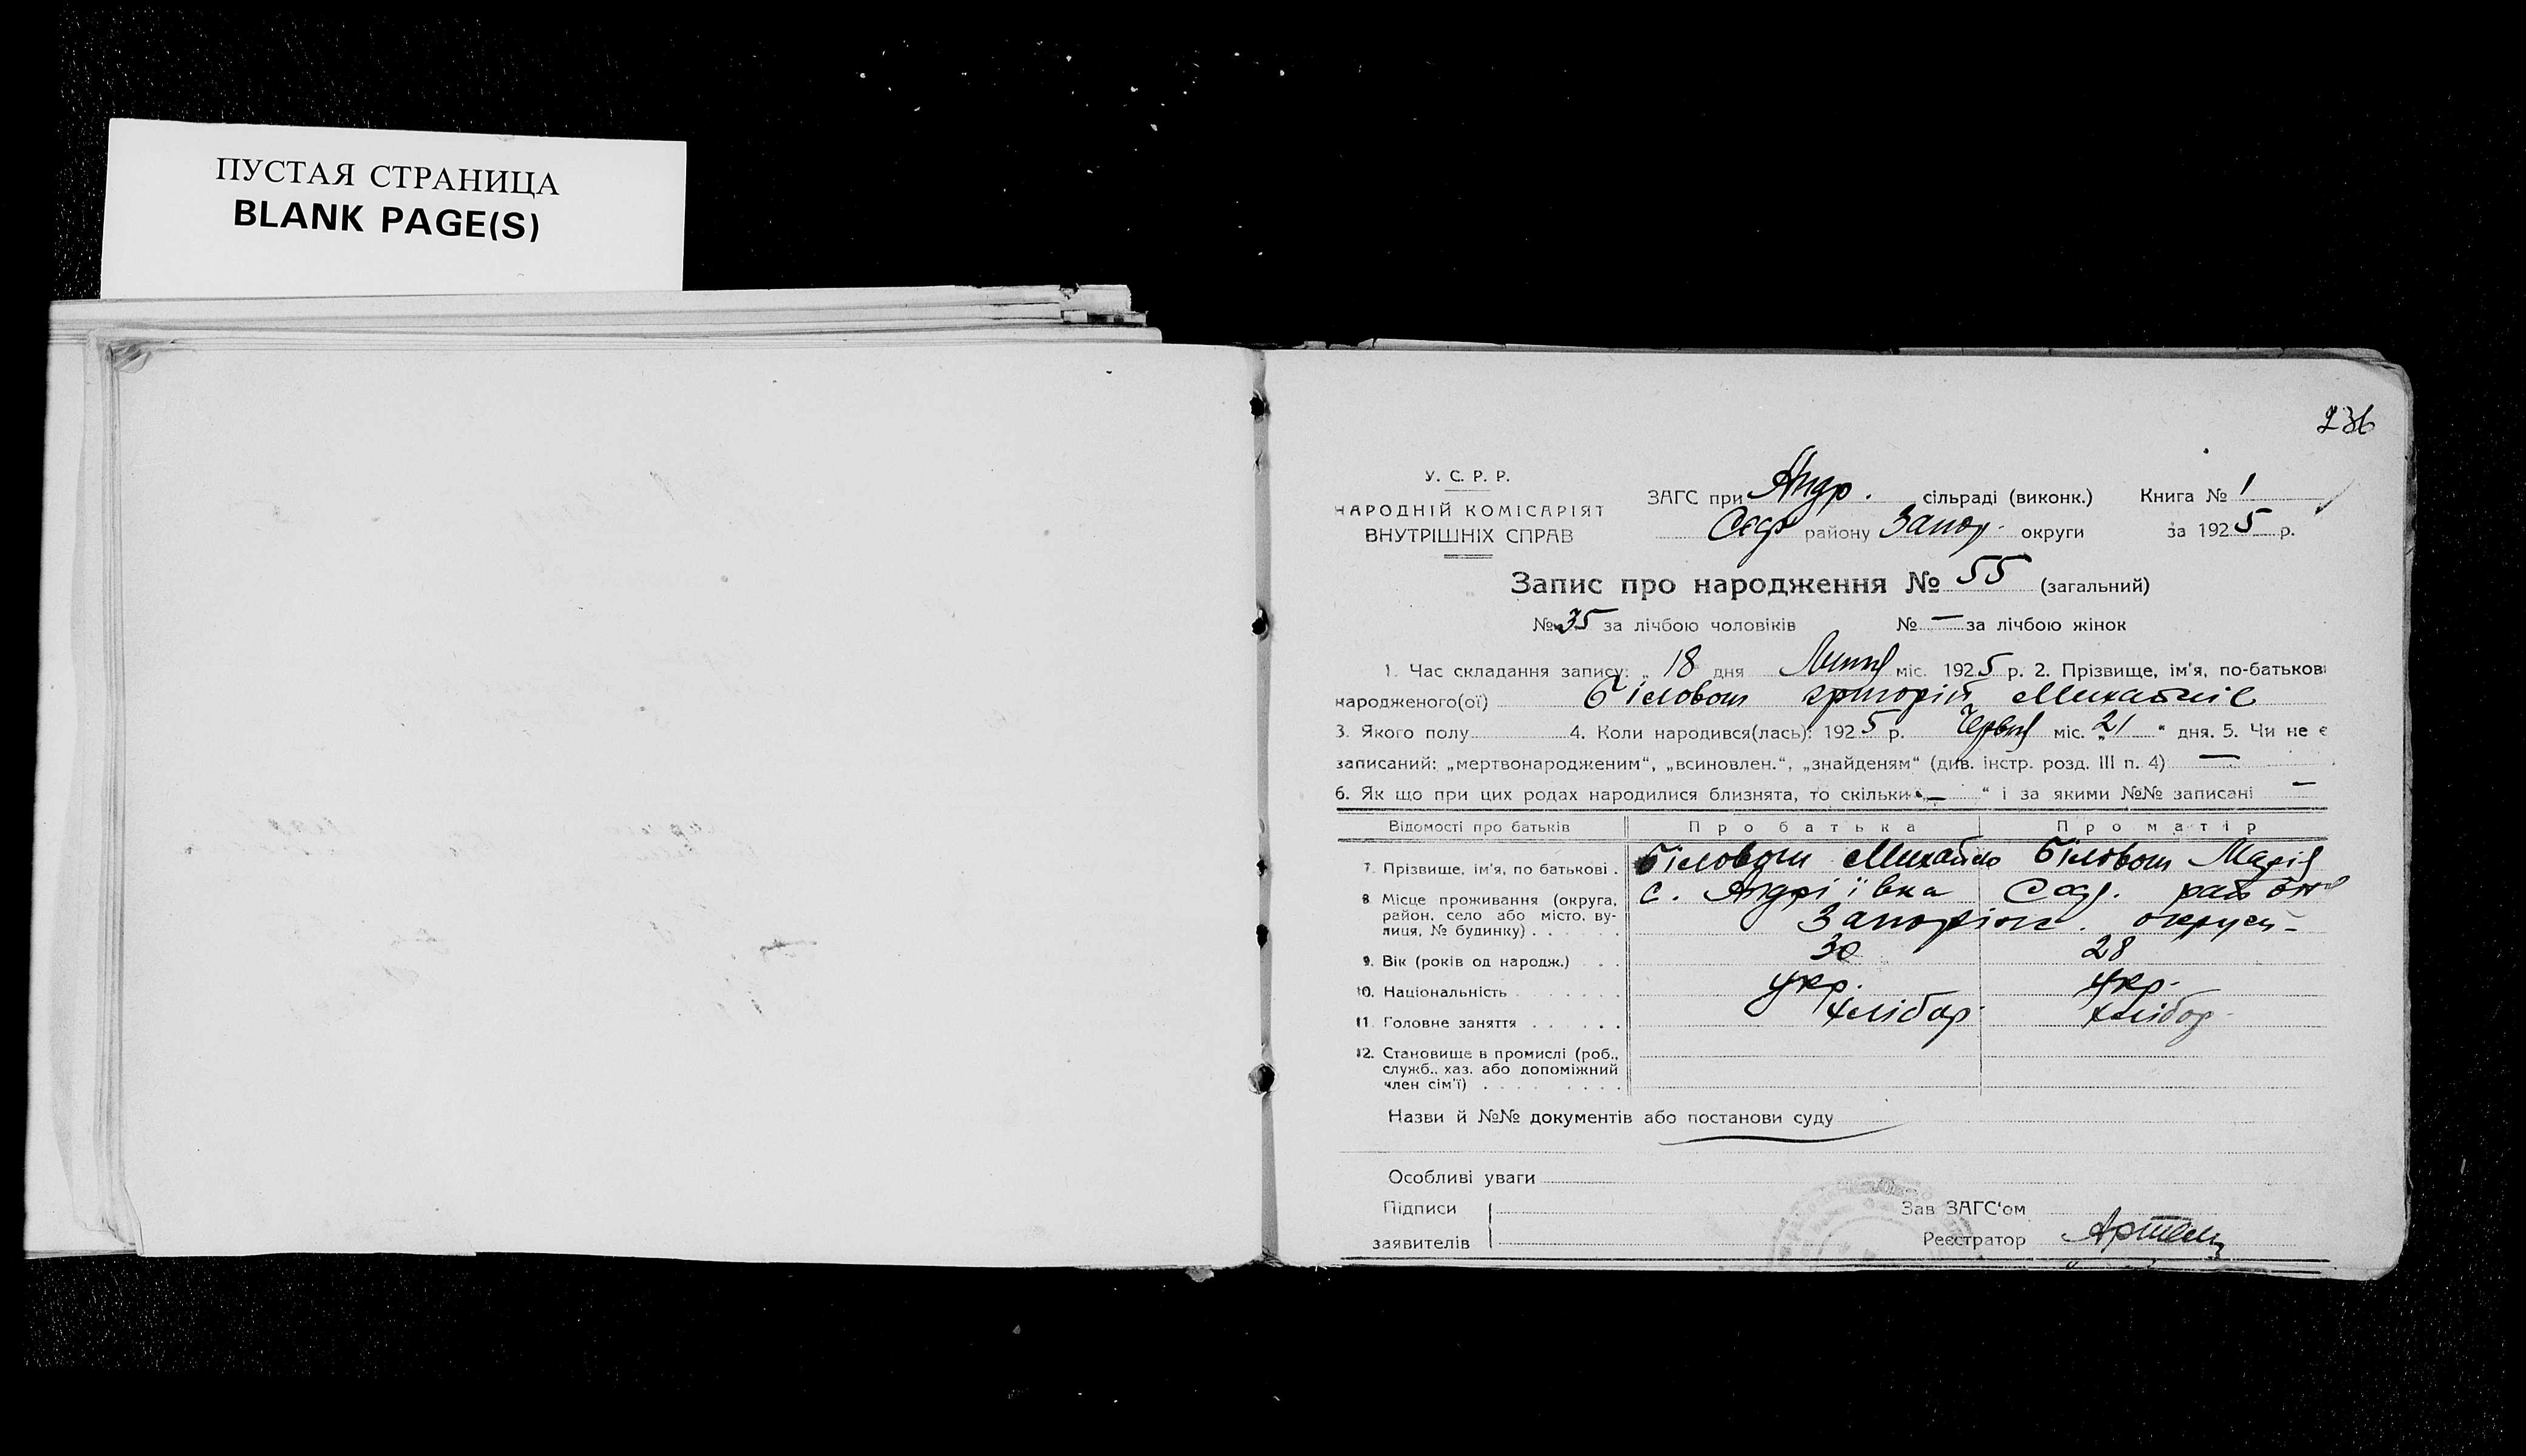 ПУСТАЯ СТРАНИЦА
BLANK PAGE(S)
236
У. С. Р. Р.
НАРОДНІЙ КОМІСАРІЯТ
ВНУТРІШНІХ СПРАВ
ЗАГС при Андр. сільраді (виконк.) Книга № 1
району Запор. округи за 1925 р.
Запис про народження № 55 (загальний)
№ 35 за лічбою чоловіків № — за лічбою жінок
1. Час складання запису: „ 18 дня Липня міс. 1925 р. 2. Прізвище, ім'я, по-батькові
народженого(ої) Біловол Григорій Михайлів
3. Якого полу 4. Коли народився(лась): 1925 р. Червня міс. „21 “ дня. 5. Чи не є
записаний: „мертвонародженим“, „всиновлен.“, „знайденям“ (див. інстр. розд. III п. 4) —
6. Як що при цих родах народилися близнята, то скільки „— “ і за якими №№ записані —
Відомості про батьків Про батька Про матір
7. Прізвище, ім'я, по батькові . Біловол Михайло Біловол Марія
8. Місце проживання (округа, район, село або місто, вулиця, № будинку) . с. Андріївка району
Запоріж. округи
9. Вік (років од народж.) . . 30 28
10. Національність . укр. укр.
11. Головне заняття . хлібор. хлібор.
12. Становище в промислі (роб.,
служб., хаз. або допоміжний
член сім'ї) .
Назви й №№ документів або постанови суду
Особливі уваги
Підписи
заявителів
Зав ЗАГС'ом
Реєстратор